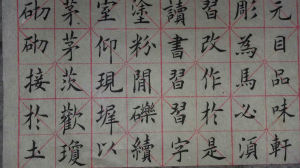 元目品味軒
彫為馬必須
習改作於是
讀書習習字
塗粉閒礫續
室仰現墀以
茅茅茨歡瓊
砌砌接於土